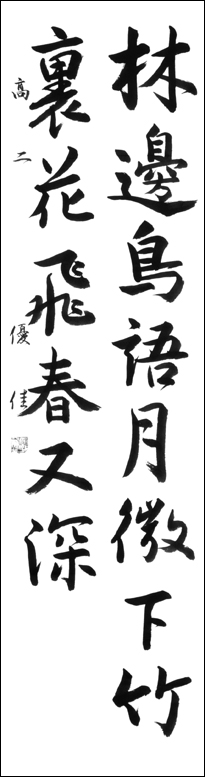 林邊鳥語月微下竹
裏花飛春又深
高二 優佳